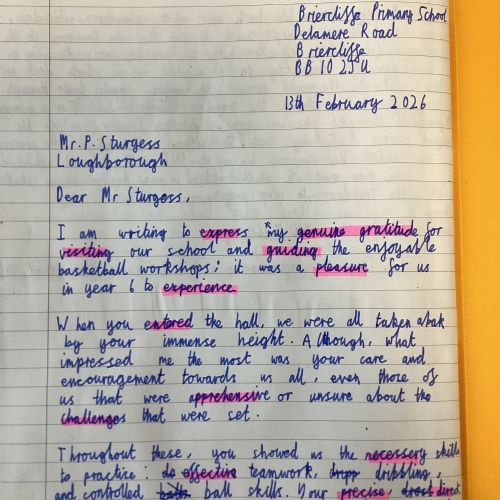 Briercliffe Primary School
Delamere Road
Briercliffe
BB10 2JU
13th February 2026
Mr. P. Sturgess
Loughborough
Dear Mr Sturgess,
I am writing to express my genuine gratitude for
visiting our school and guiding the enjoyable
basketball workshops; it was a pleasure for us
in year 6 to experience.
When you entered the hall, we were all taken abak
by your immense height. Although, what
impressed me the most was your care and
encouragement towards us all, even those of
us that were apprehensive or unsure about the
challenges that were set.
Throughout these, you showed us the necessery skills
to practise: effective teamwork, dribbling,
and controlled ball skills. Your precise, direct